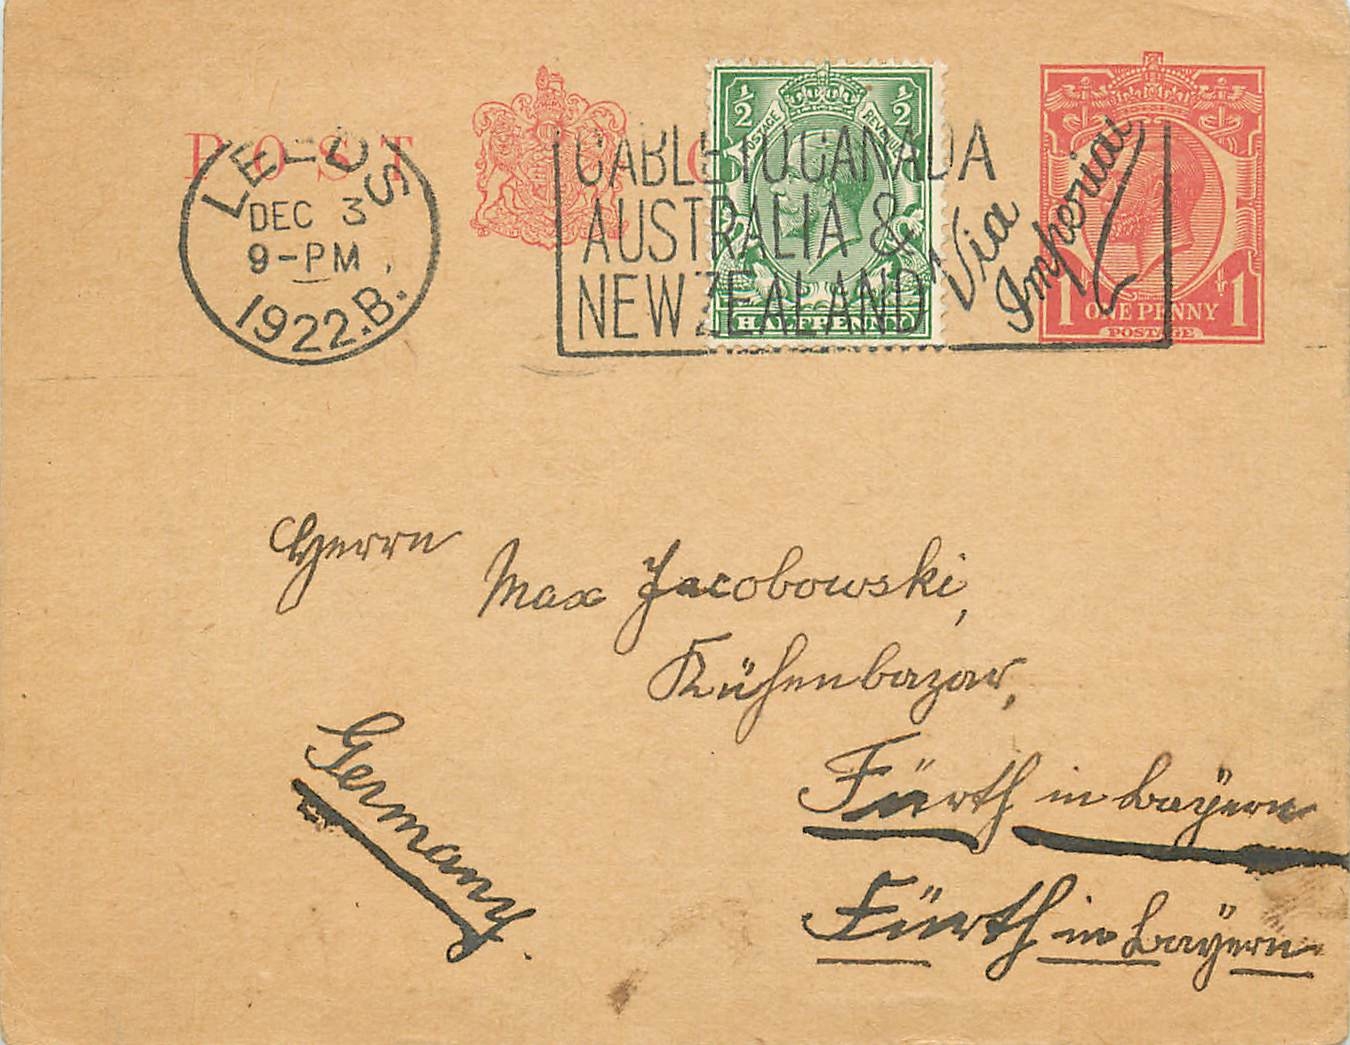 POST C
LEEDS
DEC 3
9-PM
1922.B.
CABLE TO CANADA
AUSTRALIA &
NEW ZEALAND
"Via
Imperial
½ ½
POSTAGE REVENUE
HALFPENNY
1 ONE PENNY 1
POSTAGE
Herrn
Max Jacobowski,
Kühenbazar,
Fürth in Bayern
Fürth in Bayern
Germany.